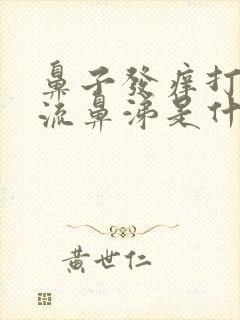 鼻子發痒打
流鼻涕是什
黄世仁